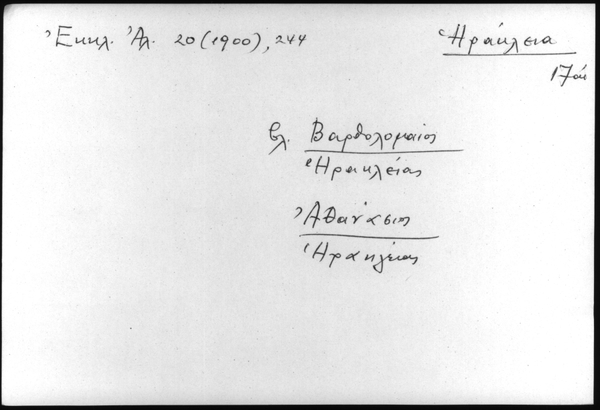 Ἐκκλ. Ἀλ. 20 (1900), 244
Ἡράκλεια
17ος αἰ.
βλ. Βαρθολομαῖος
Ἡρακλείας
Ἀθανάσιος
Ἡρακλείας